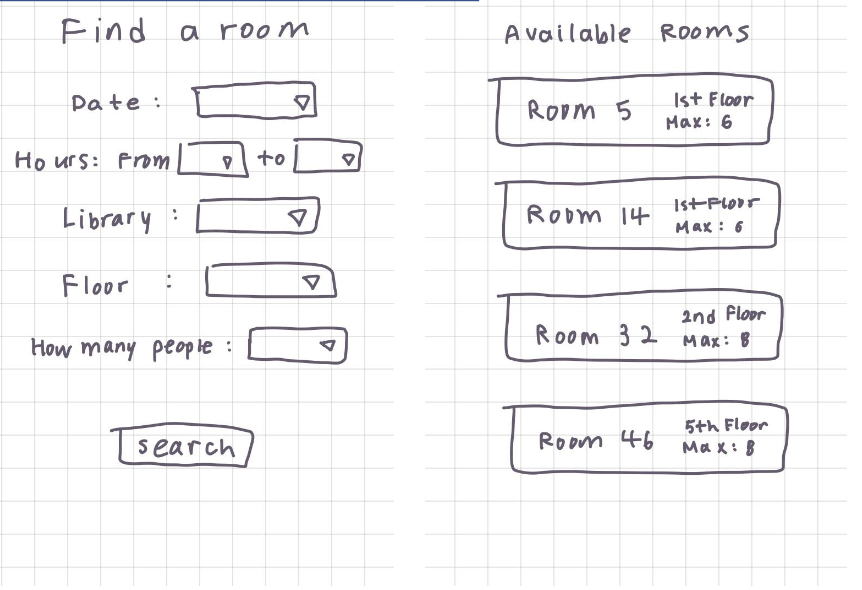 Find a room
Date :
Hours: From to
Library :
Floor :
How many people :
search
Available Rooms
Room 5
1st Floor
Max: 6
Room 14
1st Floor
Max: 6
Room 32
2nd Floor
Max: 8
Room 46
5th Floor
Max: 8